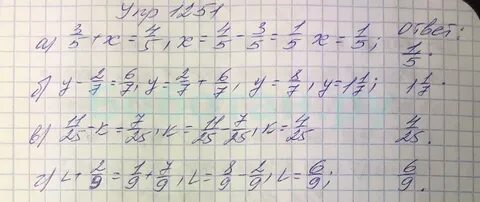 Упр 1251
а) 3/5 + x = 4/5, x = 4/5 - 3/5 = 1/5 x = 1/5; Ответ: 1/5.
б) y - 2/7 = 6/7, y = 2/7 + 6/7, y = 8/7, y = 1 1/7; 1 1/7.
в) 11/25 - к = 7/25, к = 11/25 - 7/25, к = 4/25 4/25.
г) L + 2/9 = 1/9 + 7/9, L = 8/9 - 2/9, L = 6/9; 6/9.